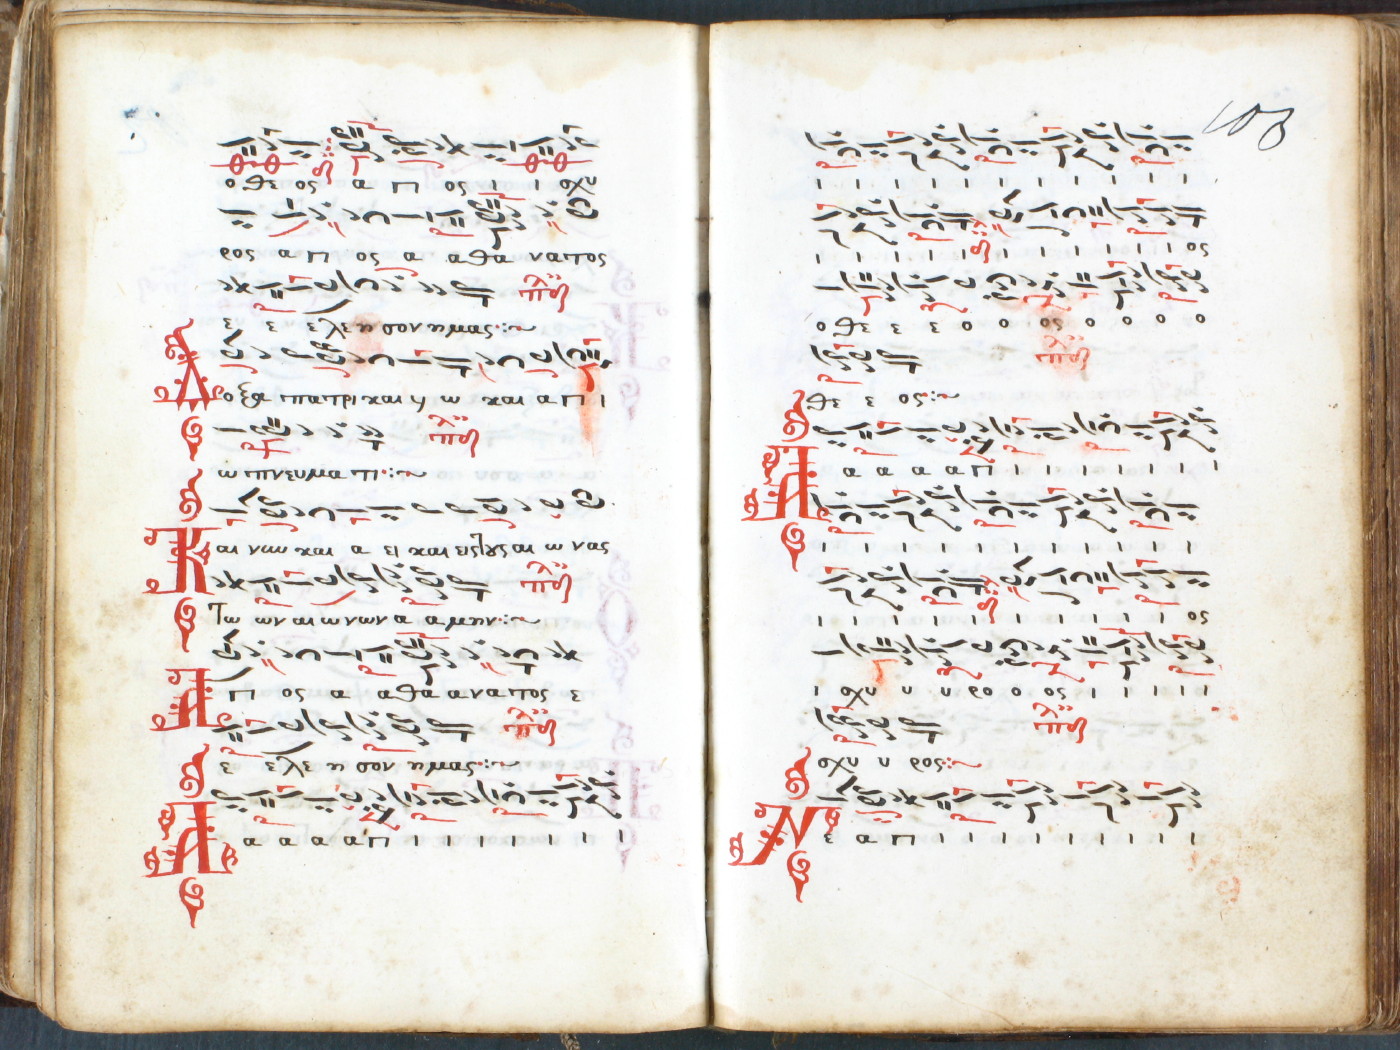 ο θε ος α π ος ι ι σχυ
ρος α π ος α α θα να τος
ε ε ε λε η σον η μας
Δ οξα πατρι και υ ω και α π ι
ω πνευμα τι
Κ αι νυν και α ει και εις τους αι ω νας
των ων αι ω νων α α μην
Α π ος α α θα α να τος ε
ε ε λε η σον η μας
Α α α α α π ι ι ι ι ι ι ι
103
ι ι ι ι ι ι ι ι ι ι ι
ι ι ι ι ι ι ι ι ι ι ος
ο θε ε ε ο ο ος ο ο ο ο
θε ε ος
Α α α α α π ι ι ι ι ι ι ι
ι ι ι ι ι ι ι ι ι ι ι
ι ι ι ι ι ι ι ι ι ι ος
ι σχυ υ υ ρο ο ος ι ι ι ι ι ι
σχυ υ ρος
Ν ε α π ι ι ι ι ι ι ι ι ι